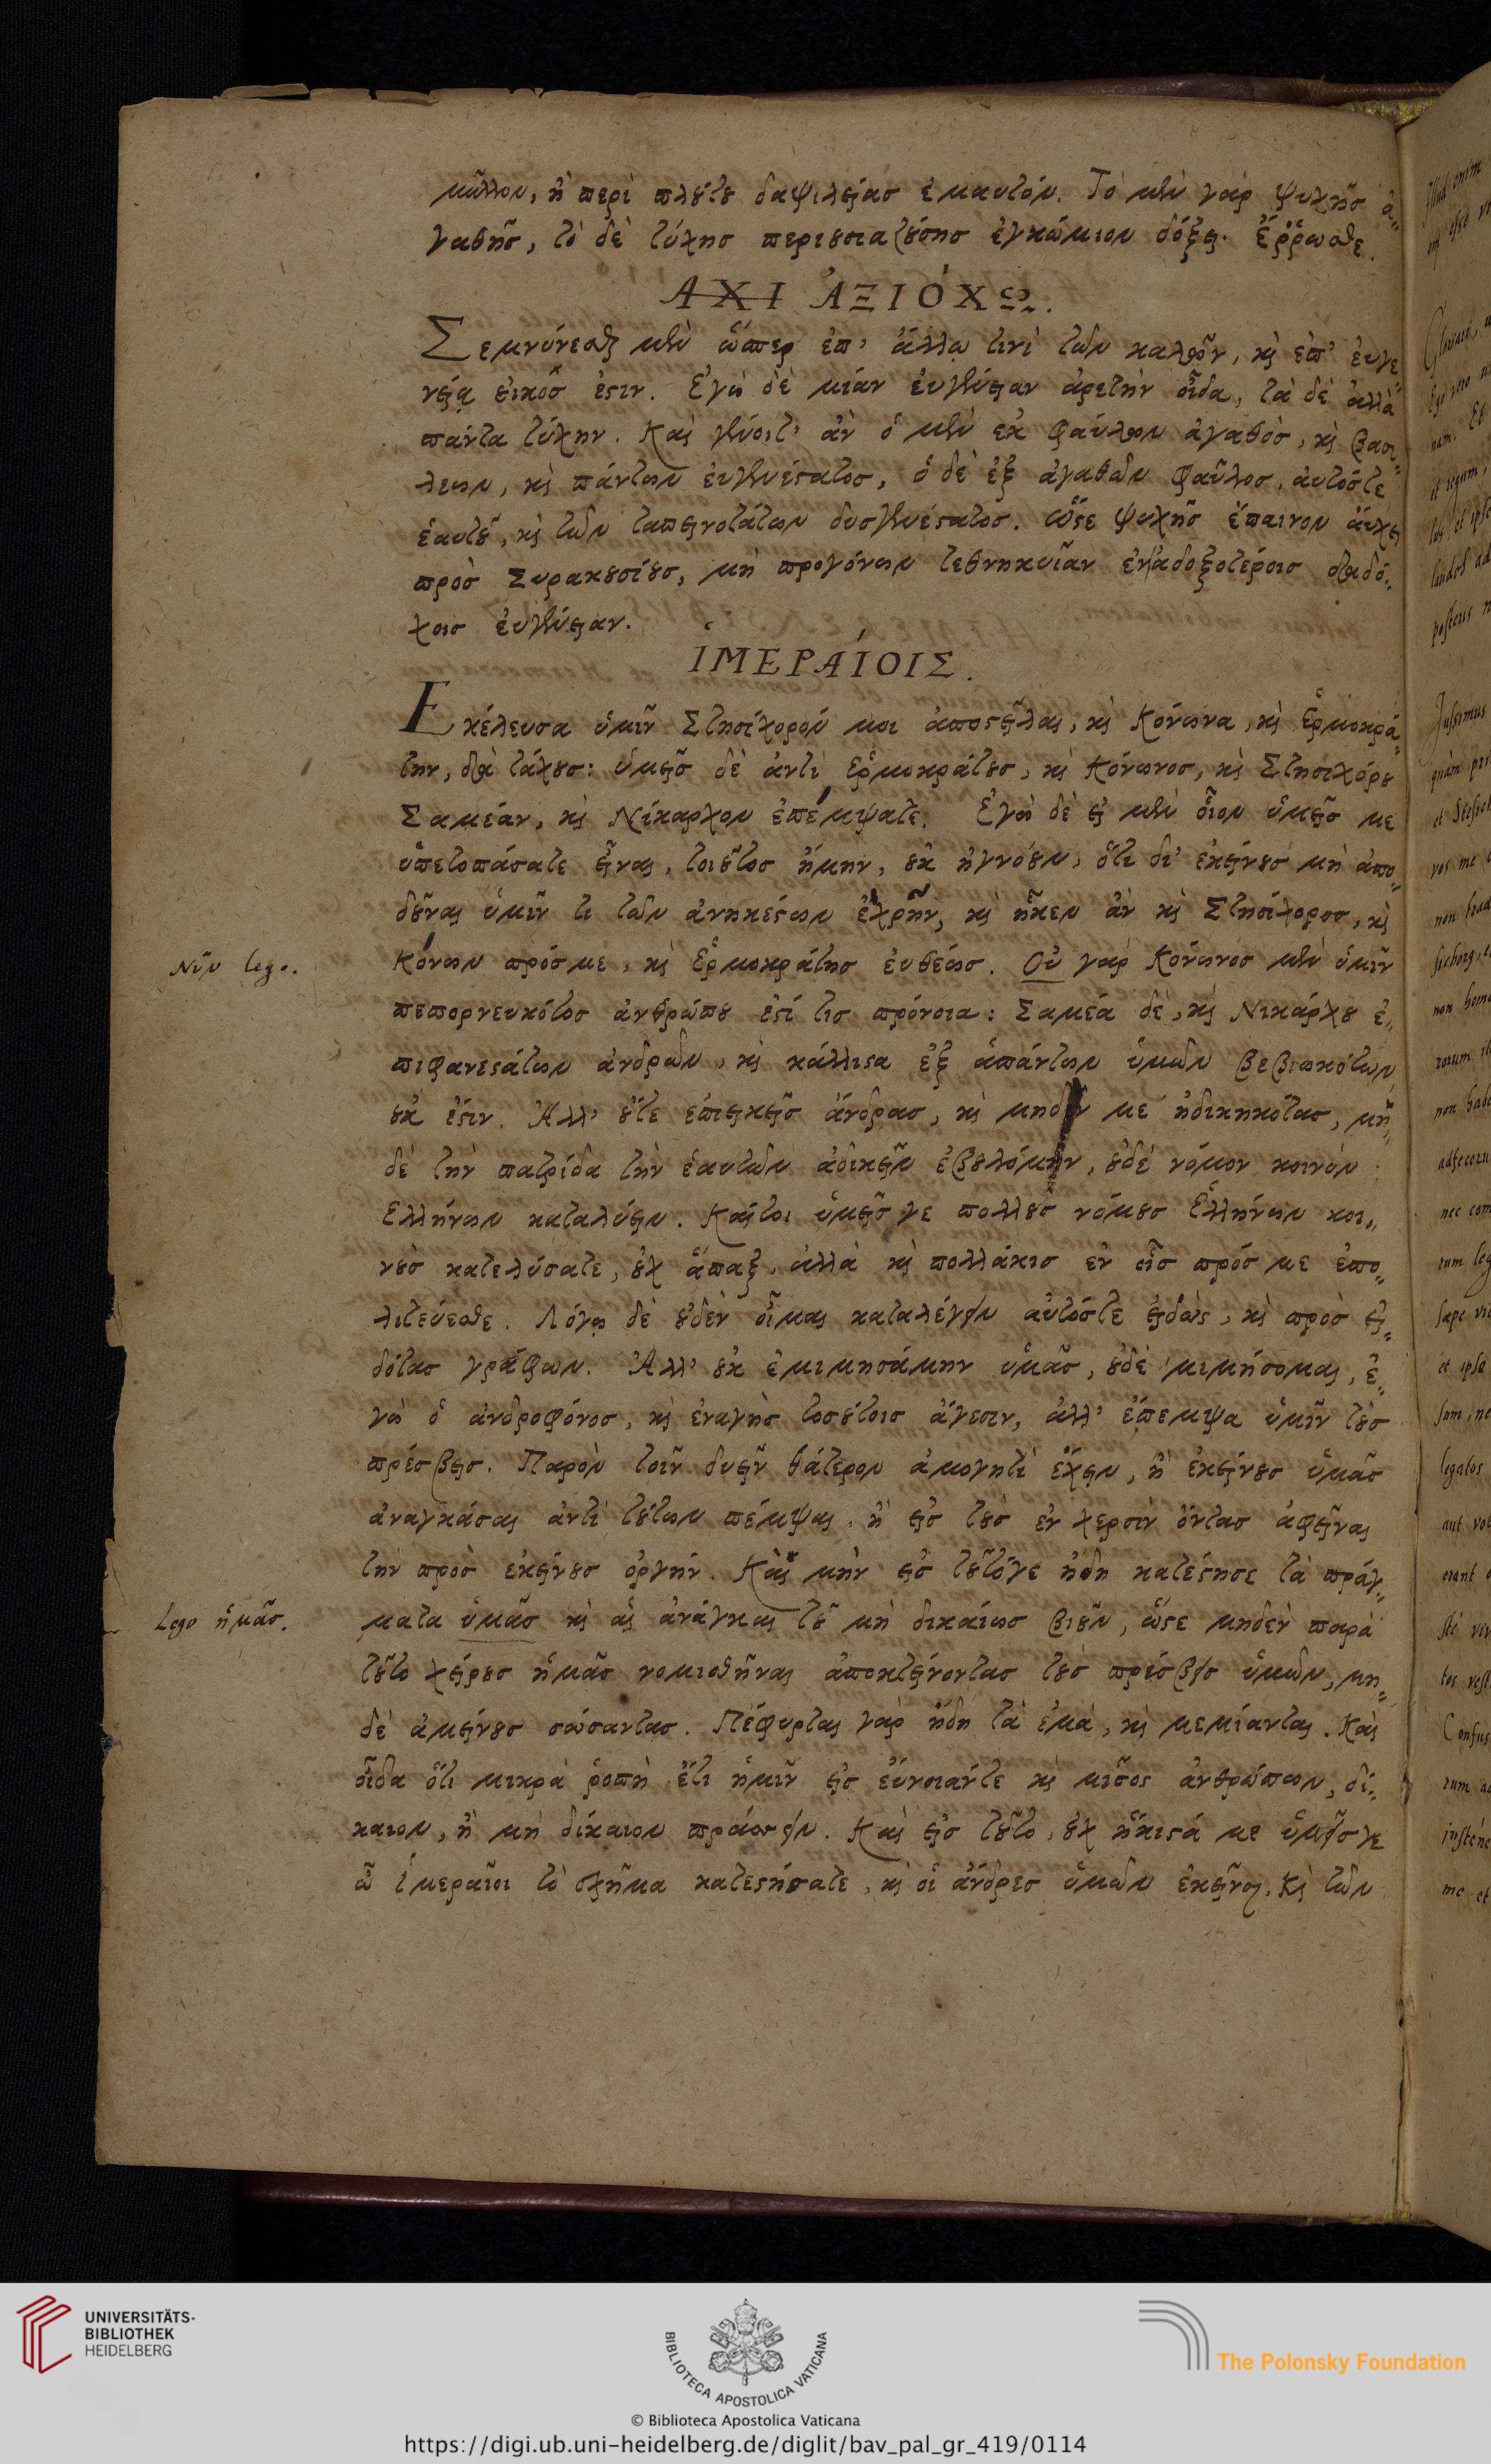 μᾶλλον, ἢ περὶ πλούτου δαψιλείας ἐμαυτόν. Τὸ μὲν γὰρ ψυχῆς ἀ„
γαθῆς, τὸ δὲ τύχης περιουσιαζούσης ἐγκώμιον δόξει. Ἔῤῥωσθε.
ΑΧΙ ἈΞΙΌΧΩ.
Σεμνύνεσθαι μὲν ὥσπερ ἐπ' ἄλλῳ τινὶ τῶν καλῶν, καὶ ἐπ' εὐγε„
νείᾳ εἰκός ἐστιν. Ἐγὼ δὲ μίαν εὐγένειαν ἀρετὴν οἶδα, τὰ δὲ ἀλλὰ
πάντα τύχην. Καὶ γένοιτ' ἂν ὁ μὲν ἐκ φαύλων ἀγαθὸς, καὶ βασι„
λέων, καὶ πάντων εὐγενέστατος, ὁ δὲ ἐξ ἀγαθῶν φαῦλος, αὐτόστε
ἑαυτοῦ, καὶ τῶν ταπεινοτάτων δυσγενέστατος. ὥστε ψυχῆς ἔπαινον αὔχει
πρὸς Συρακουσίους, μὴ προγόνων τεθνηκυῖαν ἐν ἀδοξοτέροις διαδό„
χοις εὐγένειαν.
ἹΜΕΡΑΊΟΙΣ.
Ἐκέλευσα ὑμῖν Στησίχορόν μοι ἀποστεῖλαι, καὶ Κόνωνα, καὶ Ἑρμοκρά„
την, διὰ τάχους: ὑμεῖς δὲ ἀντὶ Ἑρμοκράτους, καὶ Κόνωνος, καὶ Στησιχόρου
Σαμέαν, καὶ Νίκαρχον ἐπέμψατε. Ἐγὼ δὲ εἰ μὲν οἷον ὑμεῖς με
ὑπετοπάσατε εἶναι, τοιοῦτος ἤμην, οὐκ ἠγνόουν, ὅτι δι' ἐκείνους μὴ ἀπο„
δοῦναι ὑμῖν τι τῶν ἀνηκέστων ἐχρῆν, καὶ ἧκεν ἂν καὶ Στησίχορος, καὶ
Νῦν lego. Κόνων πρός με, καὶ Ἑρμοκράτης εὐθέως. Οὐ γὰρ Κόνωνος μὲν ὑμῖν
πεπορνευκότος ἀνθρώπου ἐστί τις πρόνοια: Σαμέα δὲ, καὶ Νικάρχου ἐ„
πιφανεστάτων ἀνδρῶν, καὶ κάλλιστα ἐξ ἁπάντων ὑμῶν βεβιωκότων
οὐκ ἔστιν. Ἀλλ' οὔτε ἐπιεικεῖς ἄνδρας, καὶ μηδὲν με ἠδικηκότας, μη„
δὲ τὴν πατρίδα τὴν ἑαυτῶν ἀδικεῖν ἐβουλόμην, οὐδὲ νόμον κοινὸν
Ἑλλήνων καταλύειν. Καίτοι ὑμεῖς γε πολλοὺς νόμους Ἑλλήνων κοι„
νοὺς κατελύσατε, οὐχ ἅπαξ, ἀλλὰ καὶ πολλάκις ἐν οἷς πρός με ἐπο„
λιτεύεσθε. Λόγῳ δὲ οὐδὲν οἶμαι καταλέγειν αὐτόστε εἰδὼς, καὶ πρὸς εἰ„
δότας γράφων. Ἀλλ' οὐκ ἐμιμησάμην ὑμᾶς, οὐδὲ μιμήσομαι, ἐ„
γὼ ὁ ἀνδροφόνος, καὶ ἐναγὴς τοσούτοις ἄγεσιν, ἀλλ' ἔπεμψα ὑμῖν τοὺς
πρέσβεις. Παρὸν τοῖν δυεῖν θάτερον ἀμογητὶ ἔχειν, ἢ ἐκείνους ὑμᾶς
ἀναγκάσαι ἀντὶ τούτων πέμψαι, ἢ εἰς τοὺς ἐν χερσὶν ὄντας ἀφεῖναι
τὴν πρὸς ἐκείνους ὀργήν. Καὶ μὴν εἰς τοῦτόγε ἤδη κατέστησε τὰ πράγ„
Lego ἡμᾶς. ματα ὑμᾶς καὶ αἱ ἀνάγκαι τοῦ μὴ δικαίως βιοῦν, ὥστε μηδὲν παρὰ
τοῦτο χείρους ἡμᾶς νομισθῆναι ἀποκτείνοντας τοὺς πρέσβεις ὑμῶν, μη„
δὲ ἀμείνους σώσαντας. Πέφυρται γὰρ ἤδη τὰ ἐμὰ, καὶ μεμίανται. Καὶ
οἶδα ὅτι μικρὰ ῥοπὴ ἔτι ἡμῖν εἰς εὔνοιάντε καὶ μῖσος ἀνθρώπων, δί„
καιον, ἢ μὴ δίκαιον πράσσειν. Καὶ εἰς τοῦτο, οὐχ ἥκιστά με ὑμεῖς γε
ὦ Ἱμεραῖοι τὸ σχῆμα κατεστήσατε, καὶ οἱ ἄνδρες ὑμῶν ἐκεῖνοι, καὶ τῶν
UNIVERSITÄTS-
BIBLIOTHEK
HEIDELBERG
BIBLIOTECA APOSTOLICA VATICANA
© Biblioteca Apostolica Vaticana
The Polonsky Foundation
https://digi.ub.uni-heidelberg.de/diglit/bav_pal_gr_419/0114